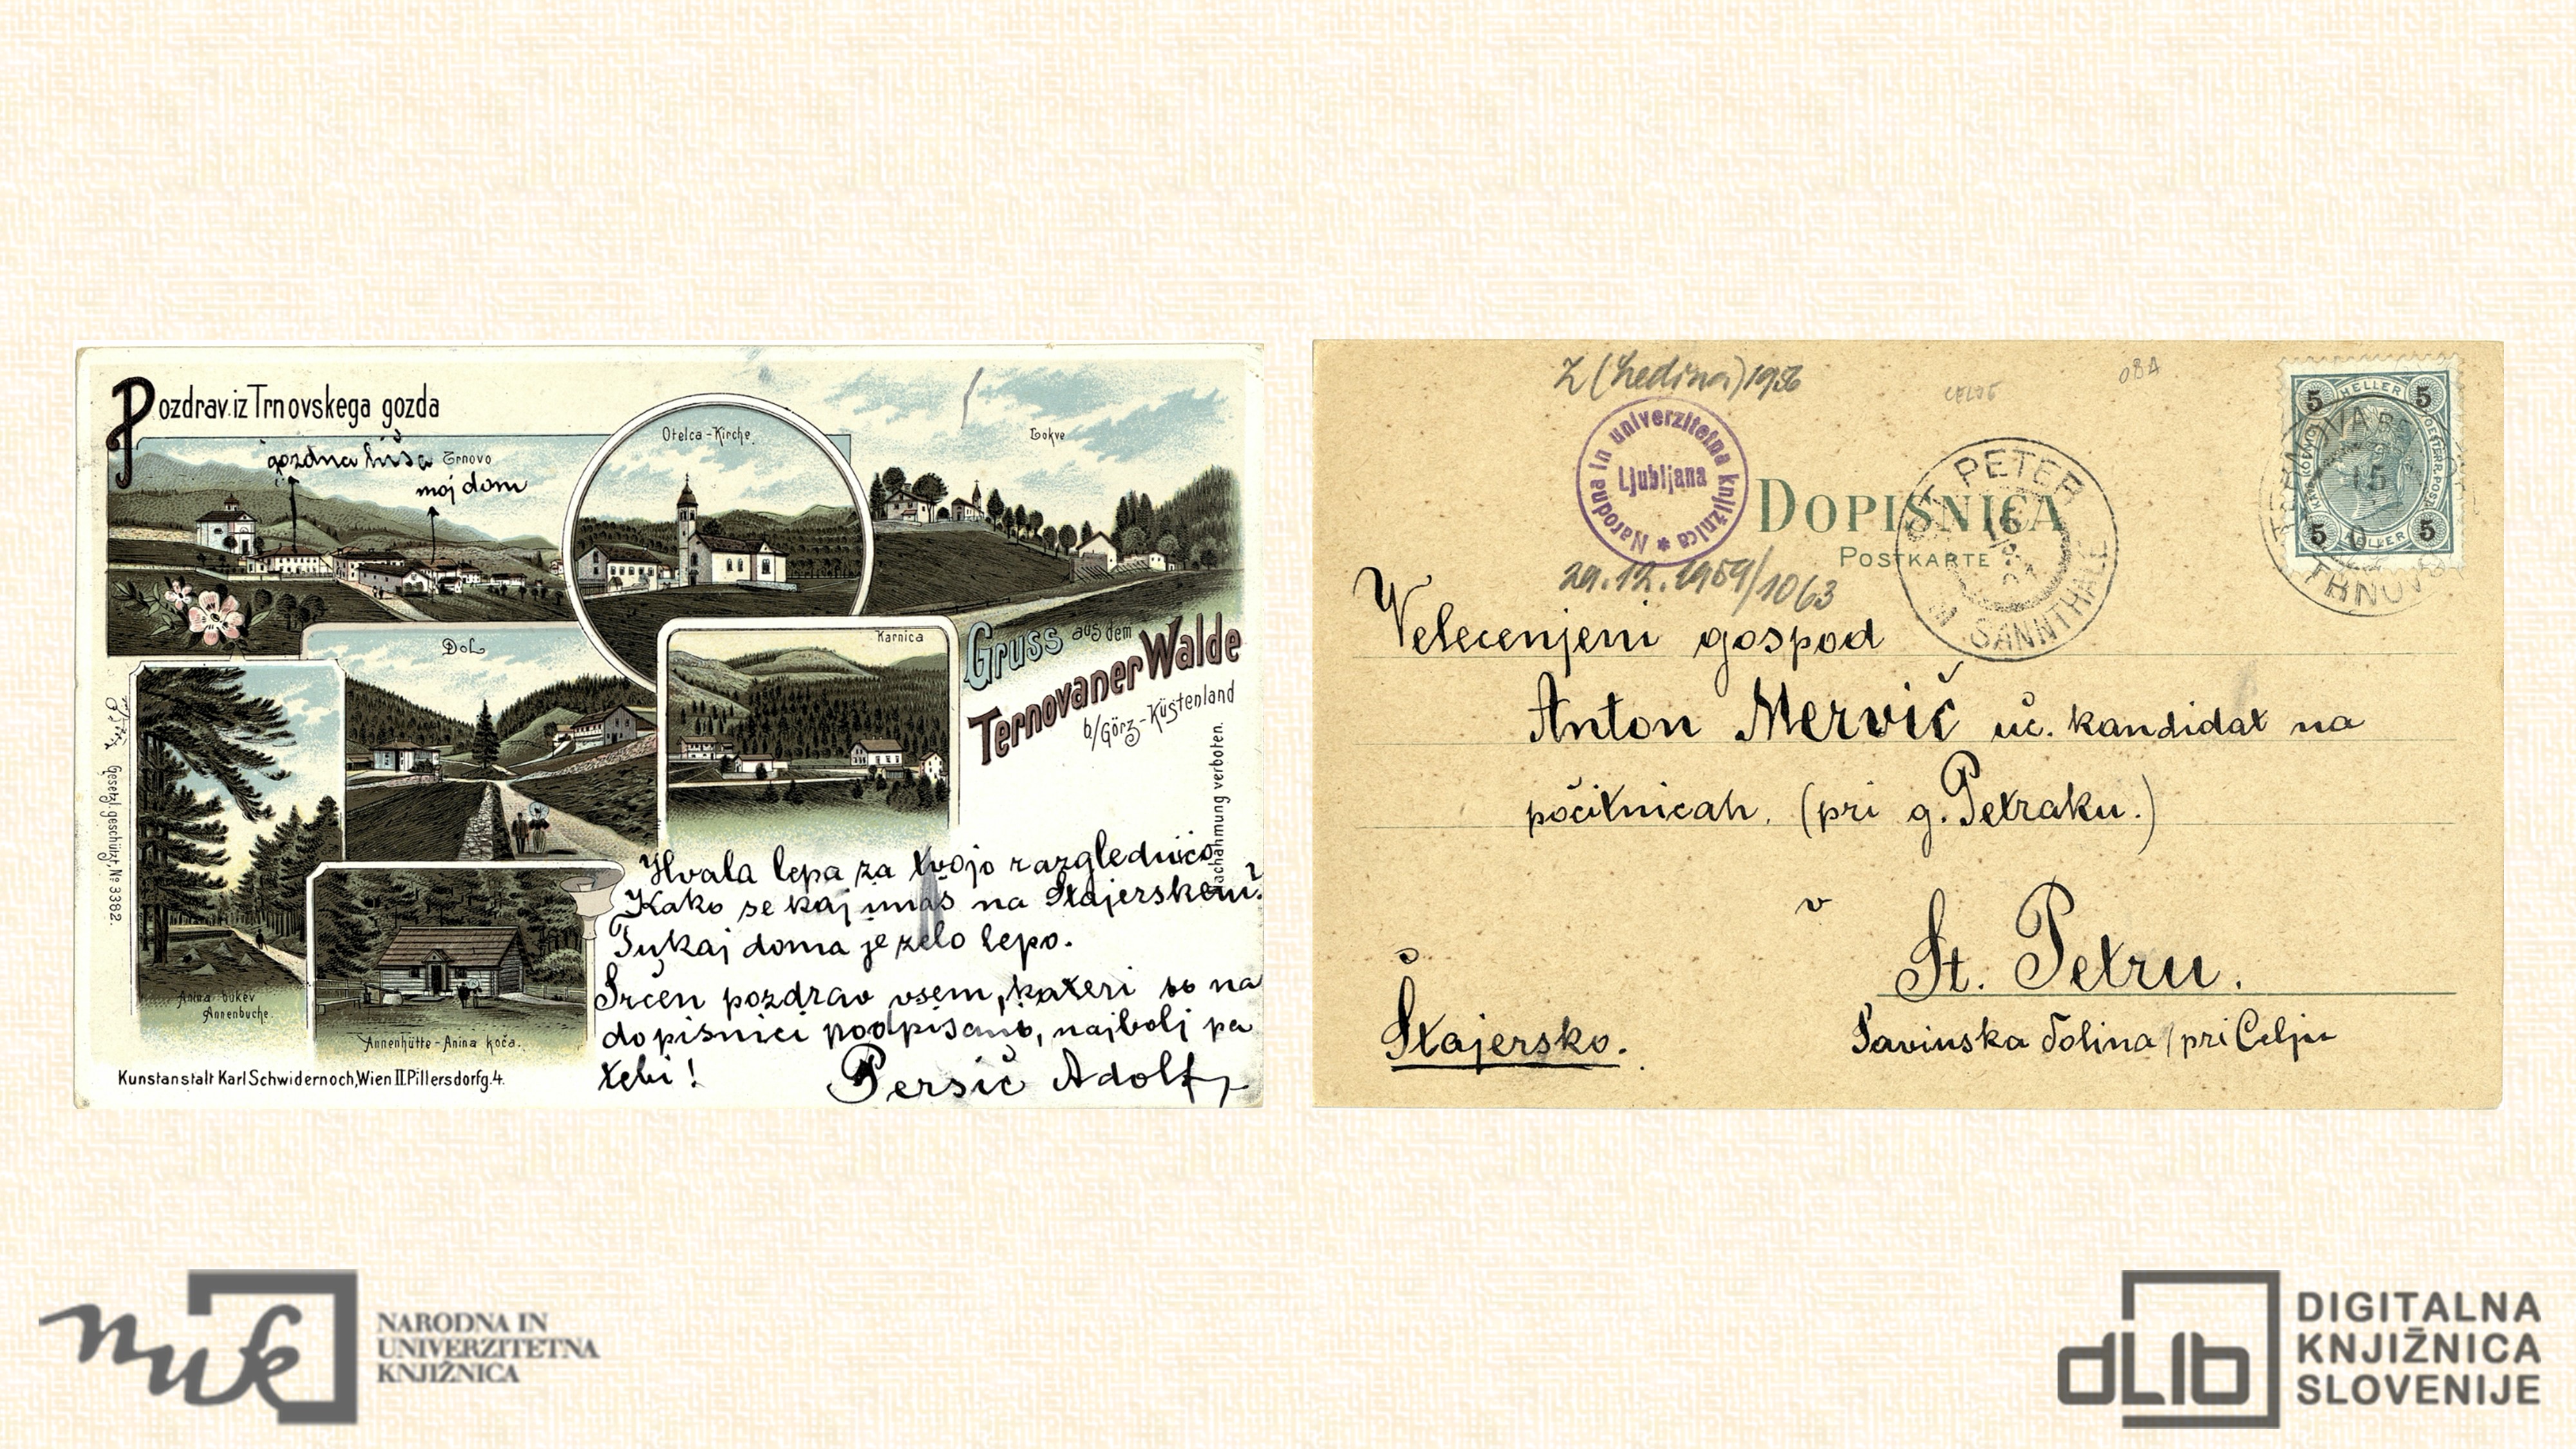 Pozdrav iz Trnovskega gozda
gozdna hiša
Trnovo
moj dom
Otelca-Kirche
Lokve
Dol
Karnica
Gruss aus dem
Ternovaner Walde
b/Görz-Küstenland
Nachahmung verboten.
Gesetzl. geschützt, No 3382.
Anina bukev
Annenbuche
Annenhütte-Anina koča.
Kunstanstalt Karl Schwidernoch, Wien II. Pillersdorfg. 4.
Hvala lepa za tvojo razglednico
Kako se kaj imaš na Štajerskem?
Tukaj doma je zelo lepo.
Srčen pozdrav vsem, kateri so na
dopisnici podpisani, najbolj pa
tebi!
Persič Adolf
Z (Ledina) 1956
Narodna in univerzitetna knjižnica
Ljubljana
29.12.1959/1063
DOPISNICA
POSTKARTE
ST. PETER
SANNTHALE
16
5 HELLER 5
5 HELLER 5
15
Velecenjeni gospod
Anton Mervič uč. kandidat na
počitnicah. (pri g. Petraku.)
v
St. Petru.
Štajersko.
Savinska dolina / pri Celju
nuk
NARODNA IN
UNIVERZITETNA
KNJIŽNICA
dLib
DIGITALNA
KNJIŽNICA
SLOVENIJE